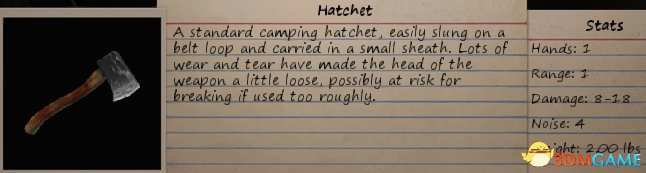 Hatchet
A standard camping hatchet, easily slung on a
belt loop and carried in a small sheath. Lots of
wear and tear have made the head of the
weapon a little loose, possibly at risk for
breaking if used too roughly.
Stats
Hands: 1
Range: 1
Damage: 8-18
Noise: 4
Weight: 2.00 lbs
3DMGAME